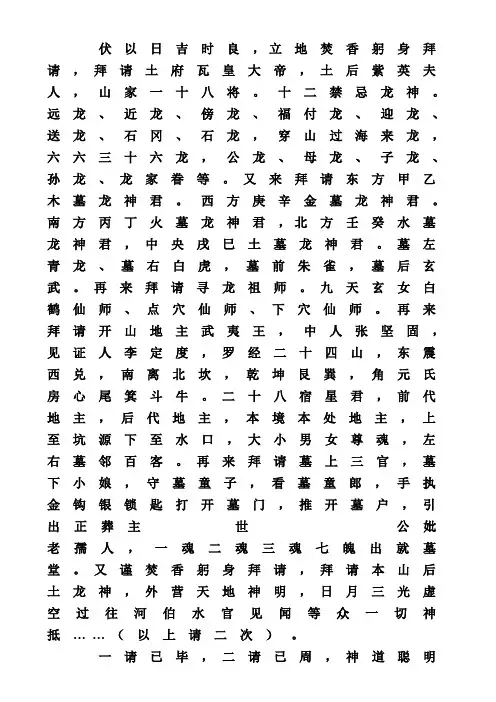 伏以日吉时良，立地焚香躬身拜
请，拜请土府瓦皇大帝，土后紫英夫
人，山家一十八将。十二禁忌龙神。
远龙、近龙、傍龙、福付龙、迎龙、
送龙、石冈、石龙，穿山过海来龙，
六六三十六龙，公龙、母龙、子龙、
孙龙、龙家眷等。又来拜请东方甲乙
木墓龙神君。西方庚辛金墓龙神君。
南方丙丁火墓龙神君，北方壬癸水墓
龙神君，中央戌巳土墓龙神君。墓左
青龙、墓右白虎，墓前朱雀，墓后玄
武。再来拜请寻龙祖师。九天玄女白
鹤仙师、点穴仙师、下穴仙师。再来
拜请开山地主武夷王，中人张坚固，
见证人李定度，罗经二十四山，东震
西兑，南离北坎，乾坤艮巽，角元氏
房心尾箕斗牛。二十八宿星君，前代
地主，后代地主，本境本处地主，上
至坑源下至水口，大小男女尊魂，左
右墓邻百客。再来拜请墓上三官，墓
下小娘，守墓童子，看墓童郎，手执
金钩银锁匙打开墓门，推开墓户，引
出正葬主 世 公妣
老孺人，一魂二魂三魂七魄出就墓
堂。又谨焚香躬身拜请，拜请本山后
土龙神，外营天地神明，日月三光虚
空过往河伯水官见闻等众一切神
抵……（以上请二次）。
一请已毕，二请已周，神道聪明